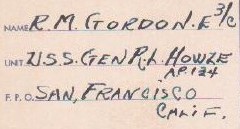 NAME R. M. GORDON. E 3/C
UNIT U.S.S. GEN R.L. HOWZE
AP. 134
F.P.O. SAN, FRANCISCO
CALIF.